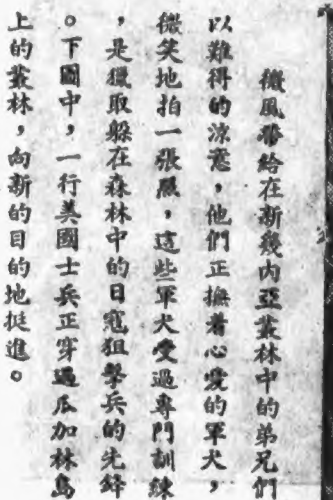 微風帶給在新幾內亞叢林中的弟兄們
以難得的涼意，他們正撫着心愛的軍犬，
微笑地拍一張照，這些軍犬受過專門訓練
，是獵取躲在森林中的日寇狙擊兵的先鋒
。下圖中，一行美國士兵正穿過瓜加林島
上的叢林，向新的目的地挺進。